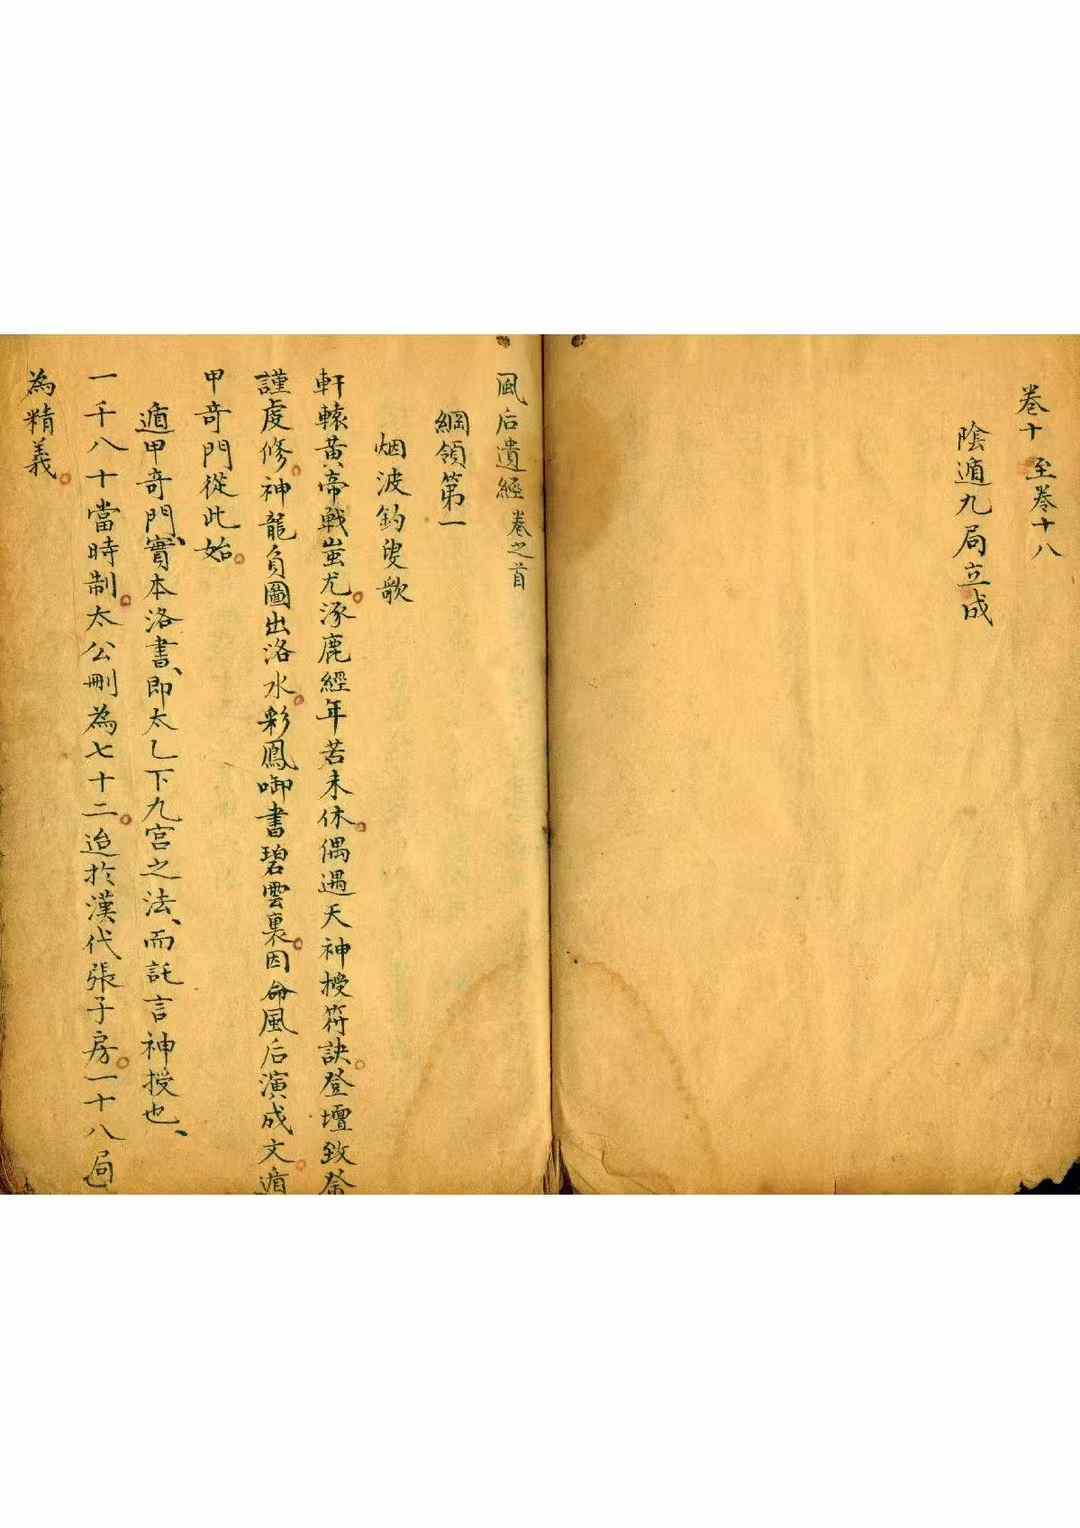 卷十至卷十八
陰遁九局立成
風后遺經卷之首
綱領第一
烟波釣叟歌
軒轅黃帝戰蚩尤涿鹿經年苦未休偶遇天神授符訣登壇致祭
謹虔修神龍負圖出洛水彩鳳啣書碧雲裏因命風后演成文遁
甲奇門從此始
遁甲奇門、實本洛書、即太乙下九宮之法、而託言神授也、
一千八十當時制太公刪為七十二迨於漢代張子房一十八局
為精義